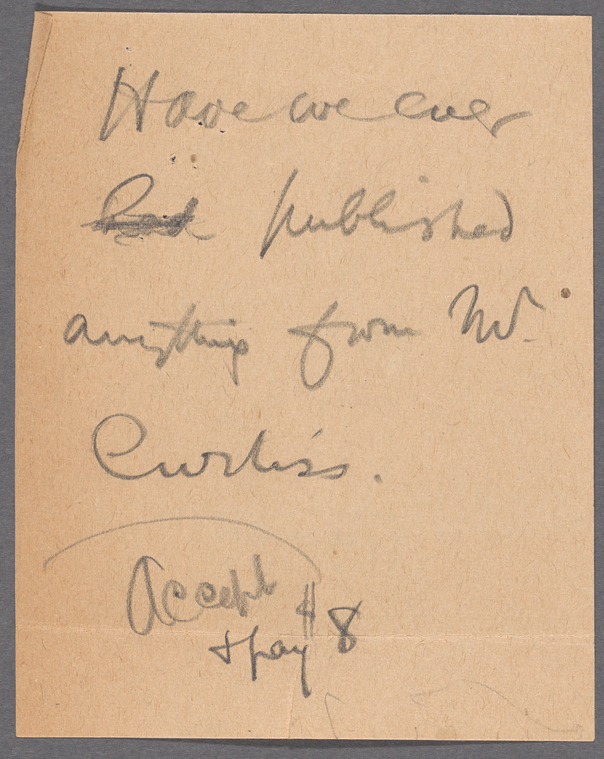 Have we ever
published
anything from Mr.
Curtiss.
Accept
& pay $8